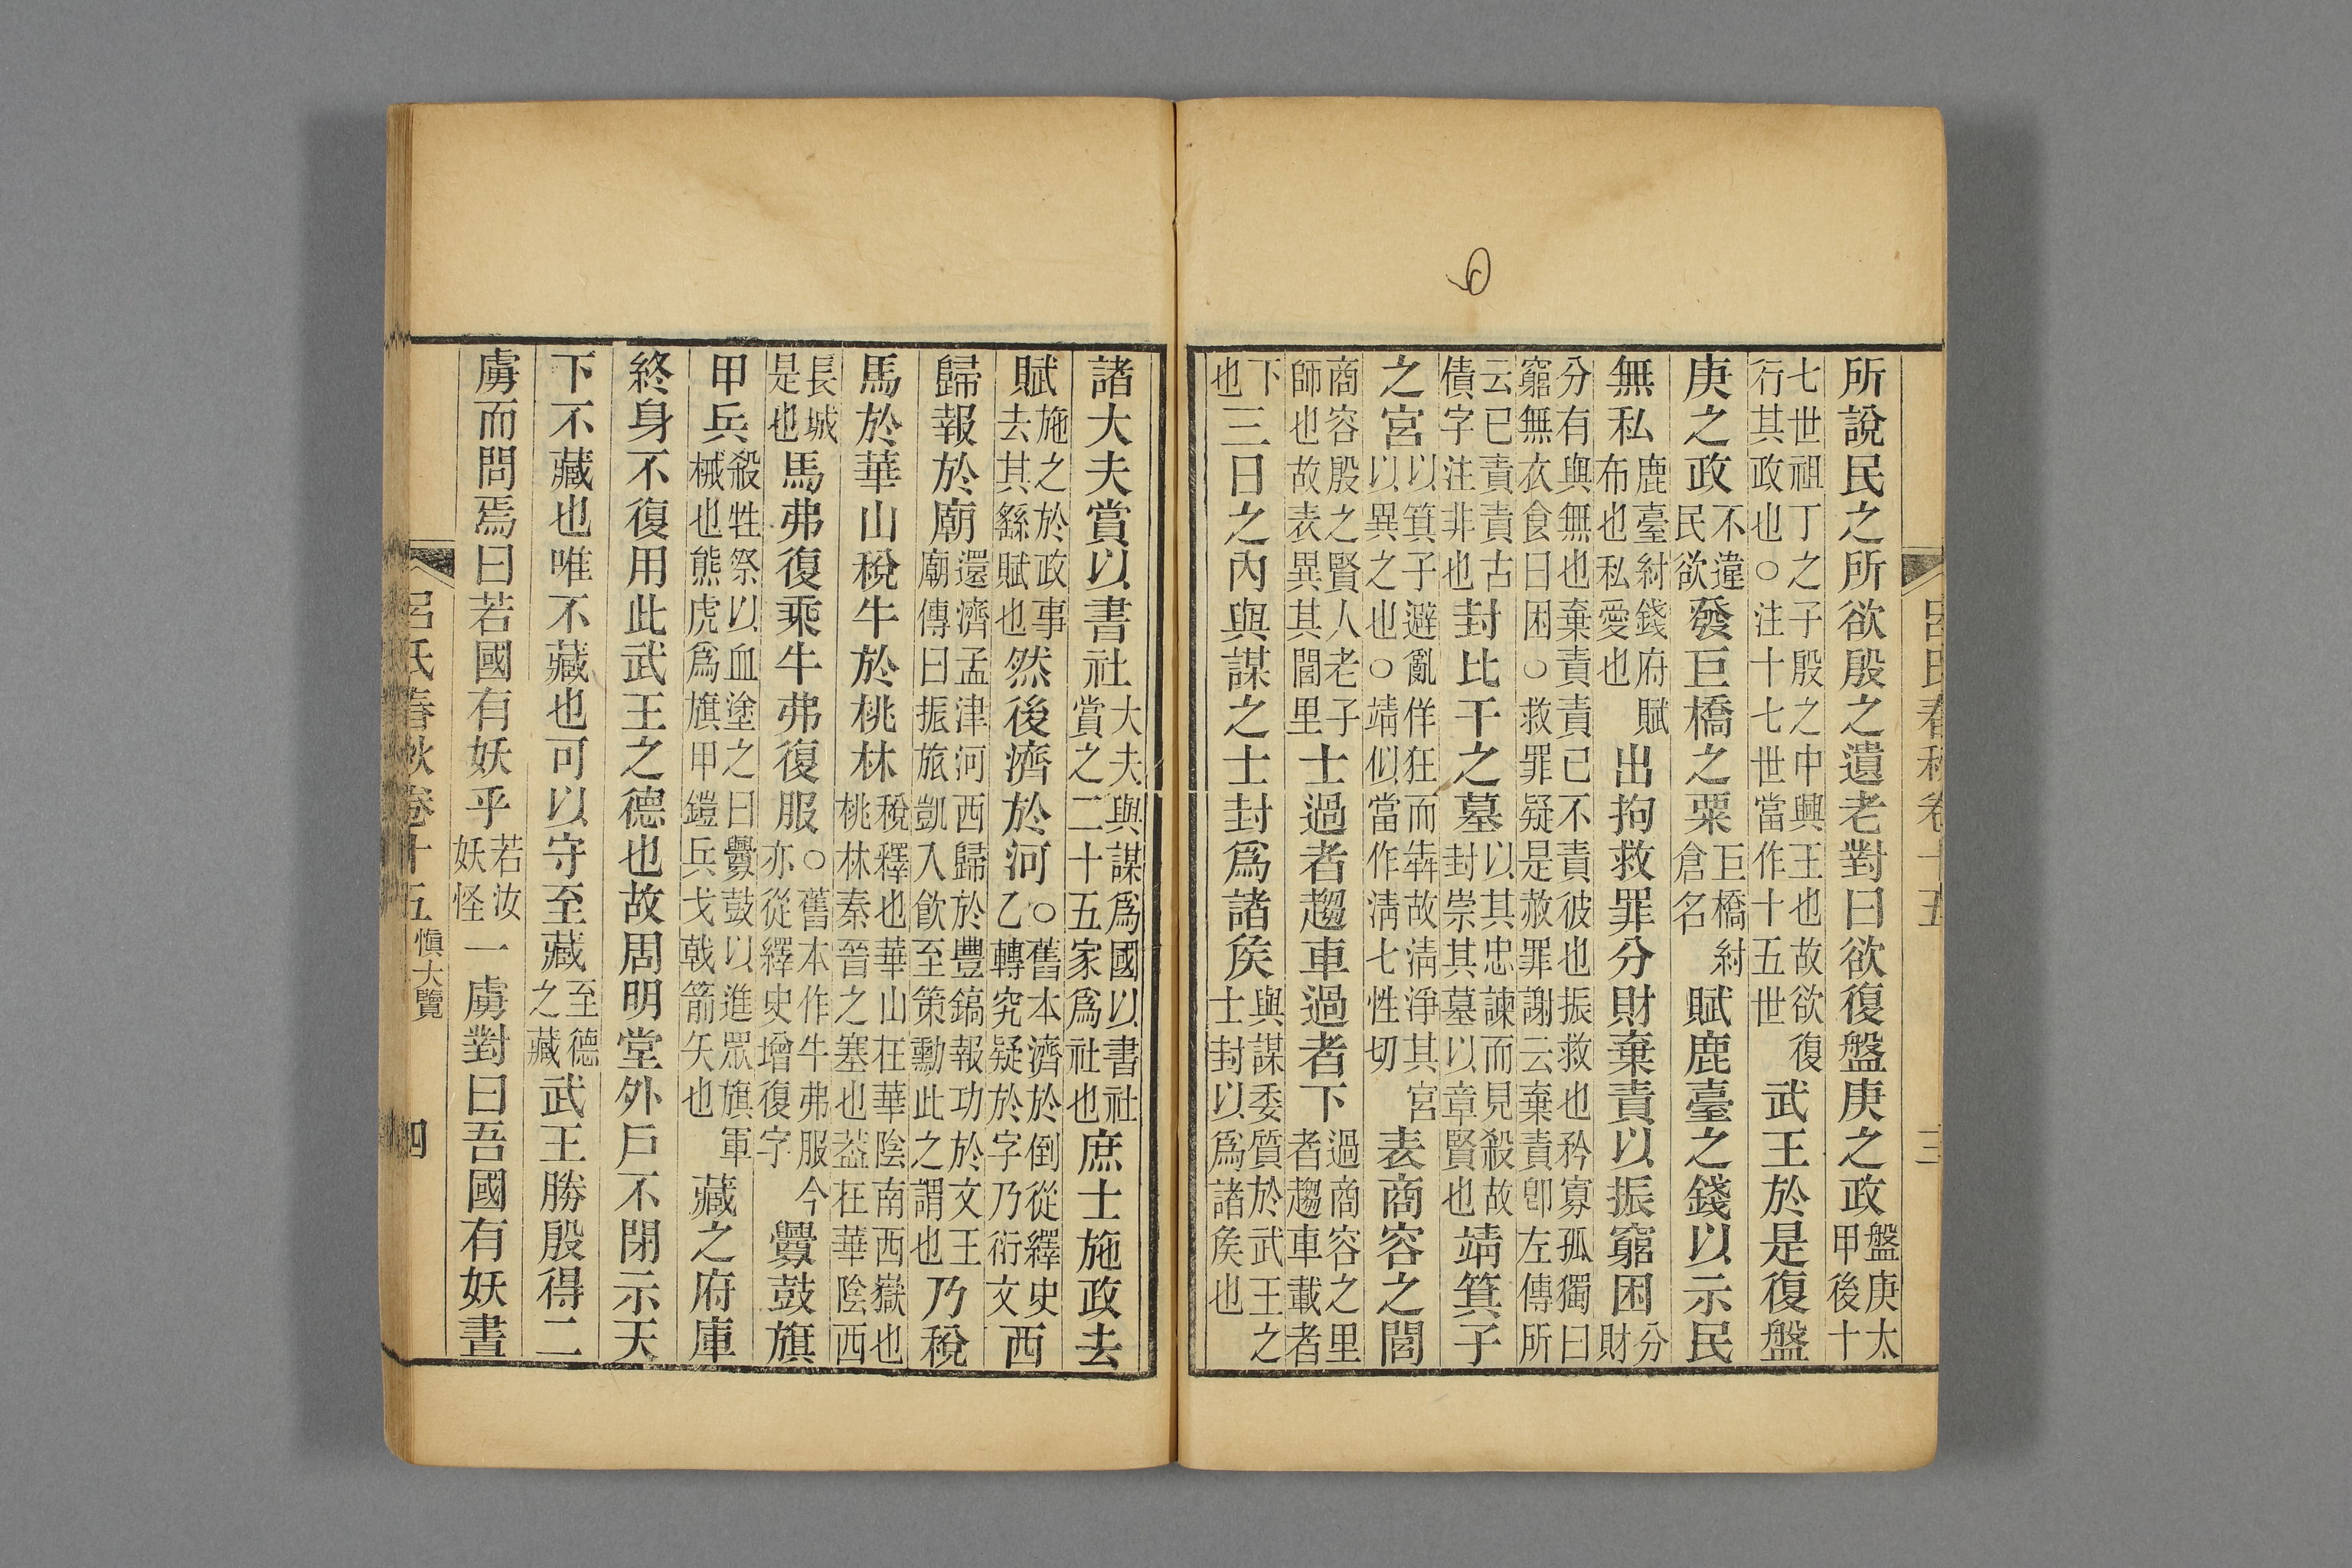 呂氏春秋卷十五 三
所說民之所欲殷之遺老對曰欲復盤庚之政盤庚太甲後十
七世祖丁之子殷之中興王也故欲復行其政也○注十七世當作十五世武王於是復盤
庚之政不違民欲發巨橋之粟巨橋紂倉名賦鹿臺之錢以示民
無私鹿臺紂錢府賦布也私愛也出拘救罪分財棄責以振窮困分財
分有與無也棄責責己不責彼也振救也矜寡孤獨曰窮無衣食曰困○救罪疑是赦罪謝云棄責卽左傳所
云已責責古債字注非也封比干之墓以其忠諫而見殺故封崇其墓以章賢也靖箕子
之宮以箕子避亂佯狂而犇故淸淨其宮以異之也○靖似當作淸七性切表商容之閭
商容殷之賢人老子師也故表異其閭里士過者趨車過者下過商容之里者趨車載者
下也三日之內與謀之士封爲諸矦與謀委質於武王之士封以爲諸矦也
諸大夫賞以書社大夫與謀爲國以書社賞之二十五家爲社也庶士施政去
賦施之於政事去其繇賦也然後濟於河○舊本濟於倒從繹史乙轉究疑於字乃衍文西
歸報於廟還濟孟津河西歸於豐鎬報功於文王廟傳曰振旅凱入飮至策勳此之謂也乃稅
馬於華山稅牛於桃林稅釋也華山在華陰南西嶽也桃林秦晉之塞也葢在華陰西
長城是也馬弗復乘牛弗復服○舊本作牛弗服今亦從繹史增復字釁鼓旗
甲兵殺牲祭以血塗之曰釁鼓以進眾旗軍械也熊虎爲旗甲鎧兵戈戟箭矢也藏之府庫
終身不復用此武王之德也故周明堂外戶不閉示天
下不藏也唯不藏也可以守至藏至德之藏武王勝殷得二
虜而問焉曰若國有妖乎若汝妖怪一虜對曰吾國有妖晝
呂氏春秋卷十五 愼大覽 四